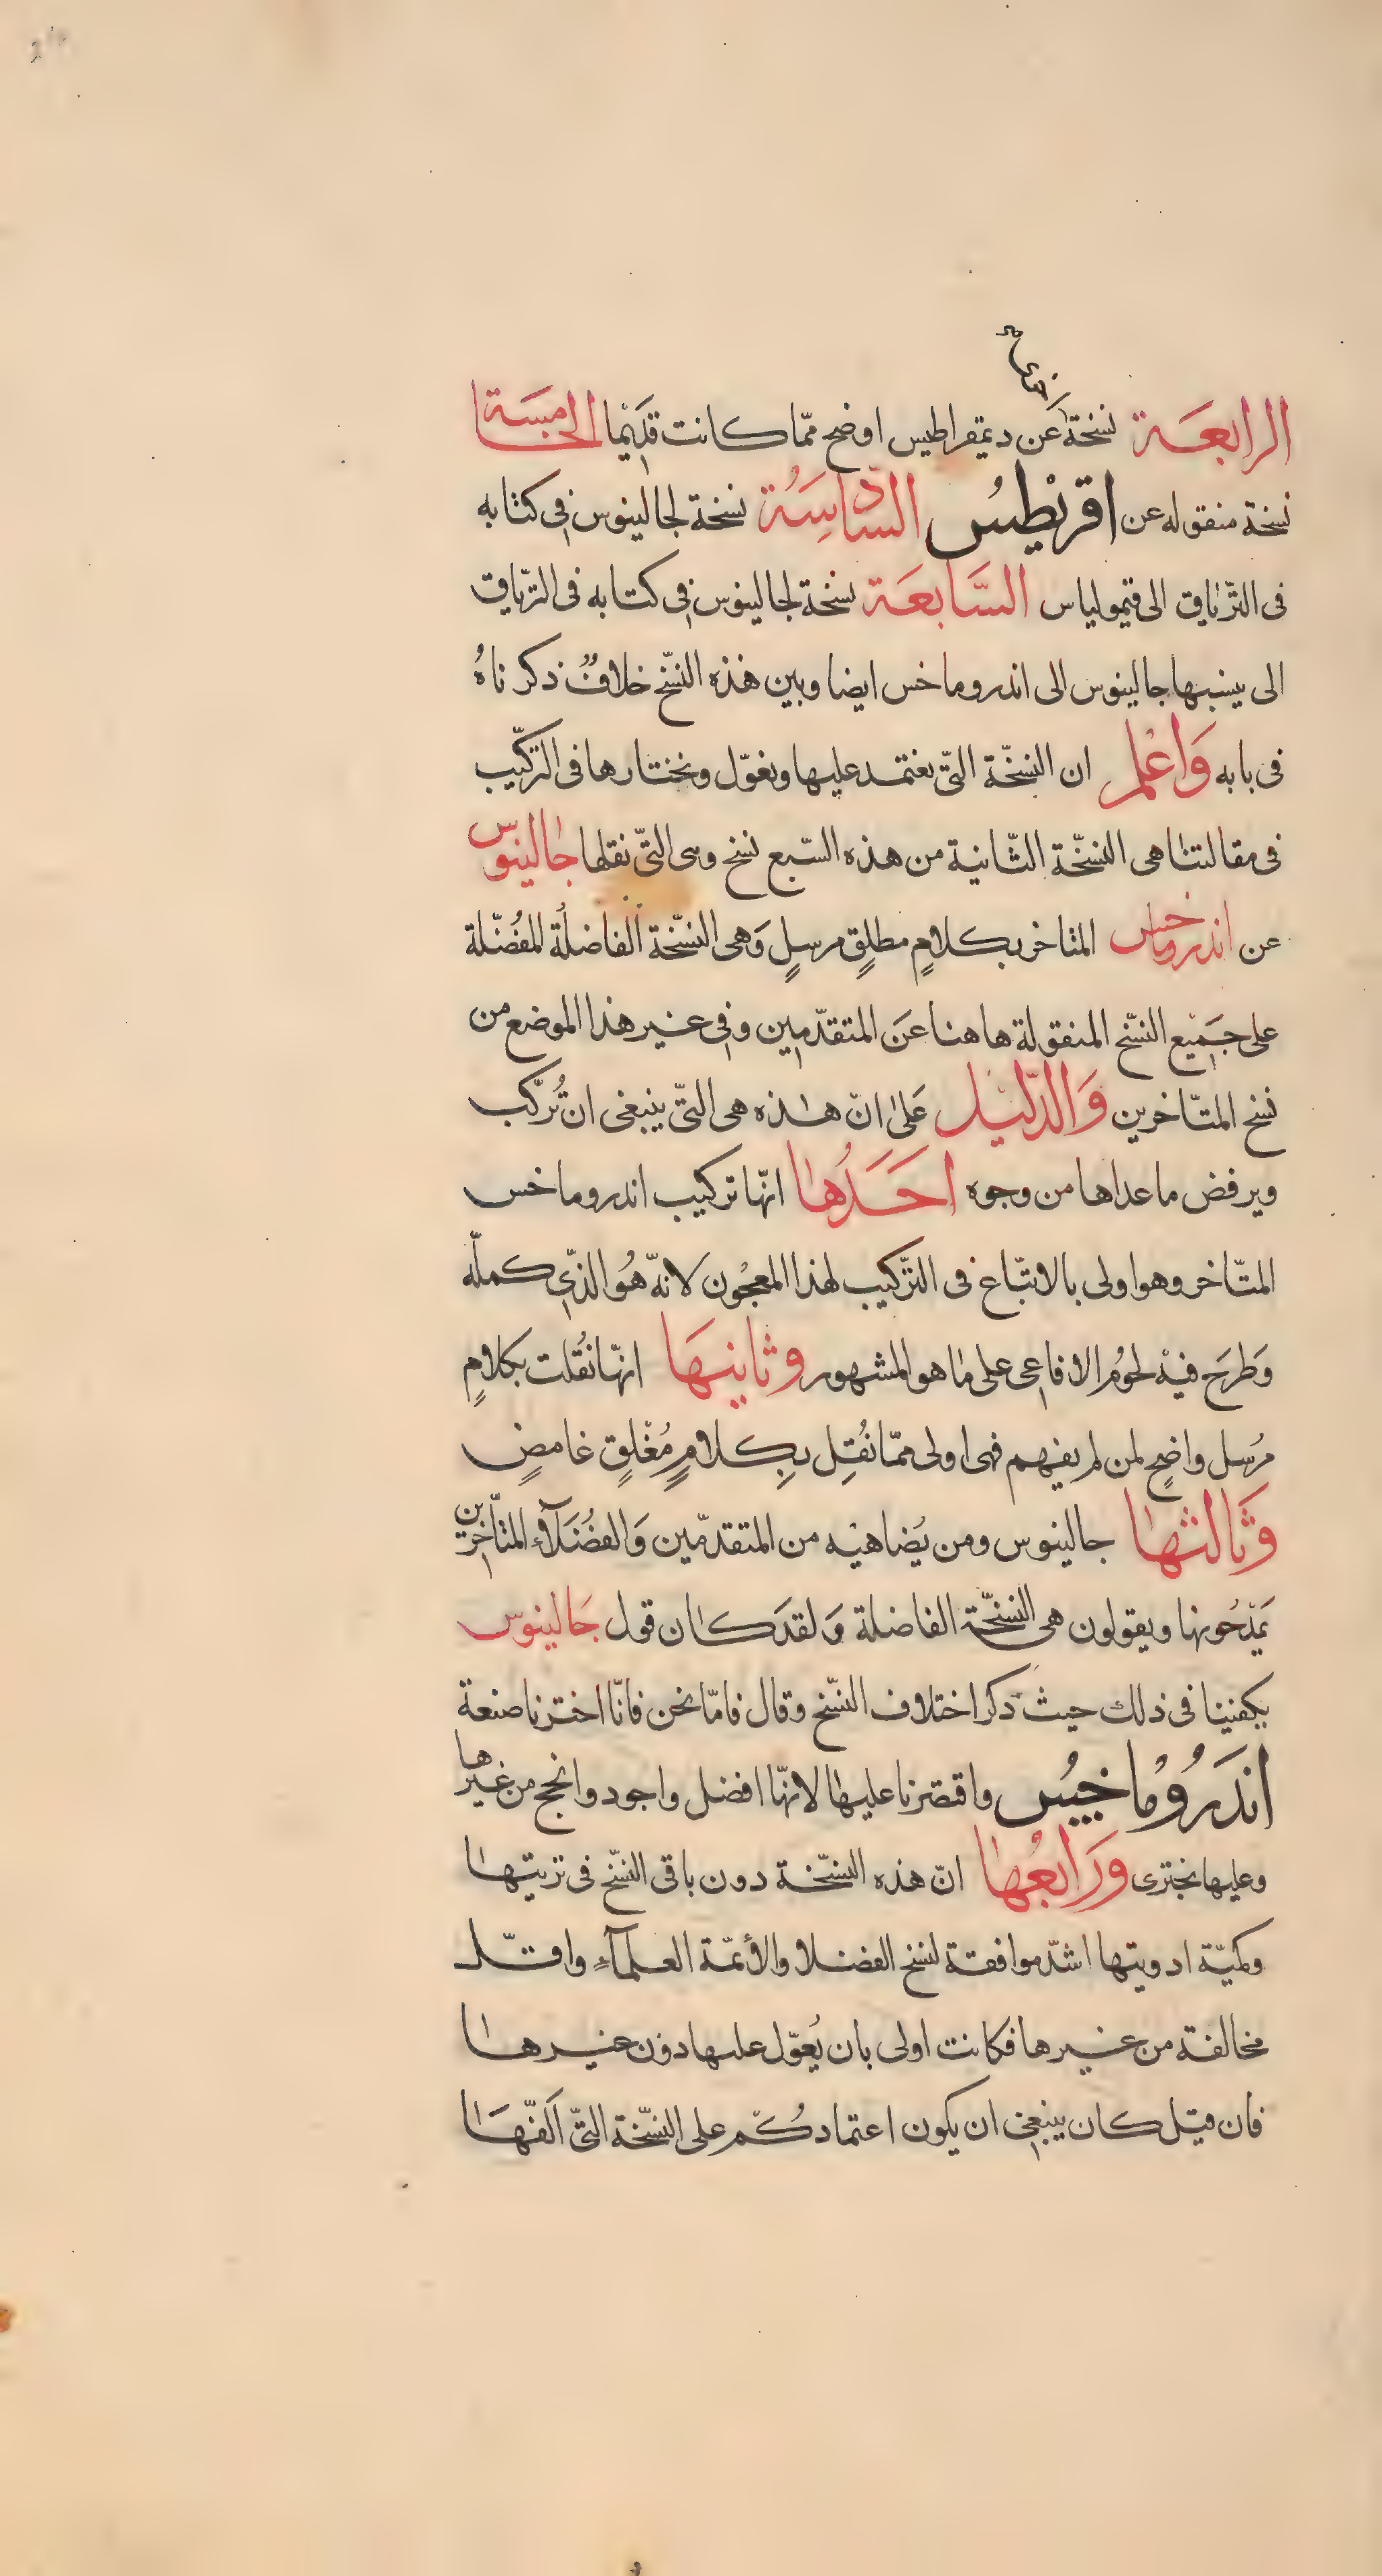 الرابعَة نسخة عَن ديمقراطيس اوضح ممّا كانت قَدِيْما الخامسَة
نسخة منقوله عن اقريْطيسُ السّادِسَةُ نسخة لجالينوس فى كتابه
فى التّرياق الى قيمولياس السَّابعَة نسخة لجالينوس فى كتابه فى الترّياق
الى ينسبها جالينوس الى اندروماخس ايضا وبين هذه النسّخ خلافٌ ذكرناهُ
فى بابه وَاعْلم ان النسخّة التىّ نعتمد عليها ونعوّل ونختارها فى التركّيب
فى مقالتنا هى النسخّة الثّانية من هذه السّبع نسخ وهى التىّ نقلها جالينوس
عن اندروماخس المتاخر بكلامٍ مطلقٍ مرسلٍ وَهى النسّخة الفاضلُة المفُضّلة
على جَميْع النسّخ المنقولة هاهنا عَن المتقدّمين وفى غير هذا الموضع من
نسخ المتّاخرين وَالدّليْل عَلىٰ انّ هٰذه هى التىّ ينبغى ان تُركّب
ويرفض ما عداها من وجوه احَدُهٰا انهّا تركيب اندروماخس
المتّاخر وهو اولى بالاتبّاع فى التّركيب لهذا المعجُون لانهّ هُو الذّى كملّه
وَطرَح فيْه لحوُم الافاعى على مٰا هو المشهور وثانيهَا انهّا نُقلت بكلامٍ
مُرسل واضحٍ لمن لم يفهم فهى اولى ممّا نُقِل بِكلامٍ مُغْلقٍ غامضٍ
وَثالثهٰا جالينوس ومن يُضاهيْه من المتقدمّين وَالفضُلآء المتأخرين
يَمْدحُونها ويقولون هى النسخّة الفاضلة وَلقدَ كٰان قول جَالينوس
يكفينا فى ذلك حيث ذكر اختلاف النسّخ وقال فامّا نحن فانّا اخترنا صنعة
اندَرُوُماخيُس واقتصرنا عليهٰا لانهّا افضل واجود وانجح من غيرها
وعليها نجتزى وَرَابعُهٰا انّ هذه النسّخة دون باقى النسّخ فى ترتيبهٰا
وكميّة ادويتها اشدّ موافقة لنسخ الفضلا والأئمّة العلمآء واقلّ
مخالفة من غيرها فكانت اولى بان يُعوّل عليها دون غيرهٰا
فان قيل كان ينبغى ان يكون اعتمادكُم على النسّخة التىّ الَفّهَا